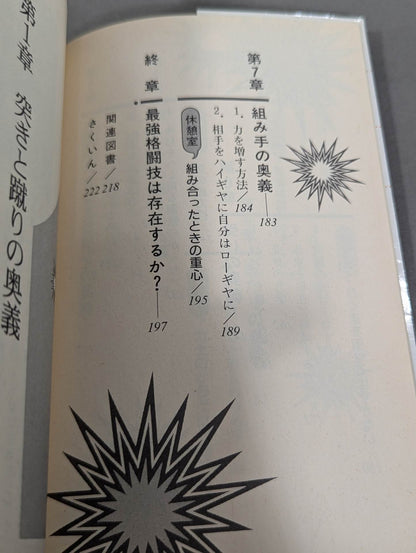 第7章 組み手の奥義──183
1. 力を増す方法／184
2. 相手をハイギヤに自分はローギヤに／189
休憩室 組み合ったときの重心／195
終章 最強格闘技は存在するか？──197
関連図書／218
さくいん／222
第1章 突きと蹴りの奥義